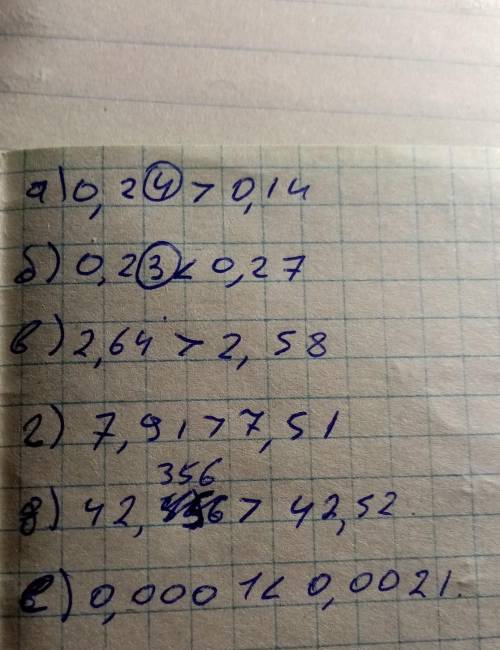 а) 0,24 > 0,14
б) 0,23 < 0,27
в) 2,64 > 2,58
г) 7,91 > 7,51
356
д) 42, > 42,52.
е) 0,0001 < 0,0021.